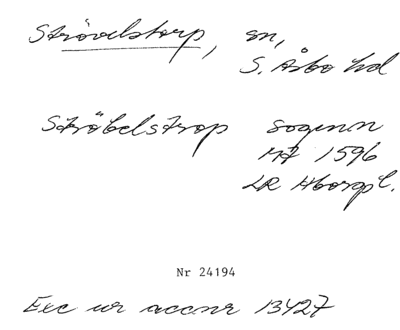 Strövelstorp, sn,
S. Åsbo hd
Ströbelstrop sognnn
M7 1596
LR Hborg l.
Nr 24194
Exc ur accnr 13427